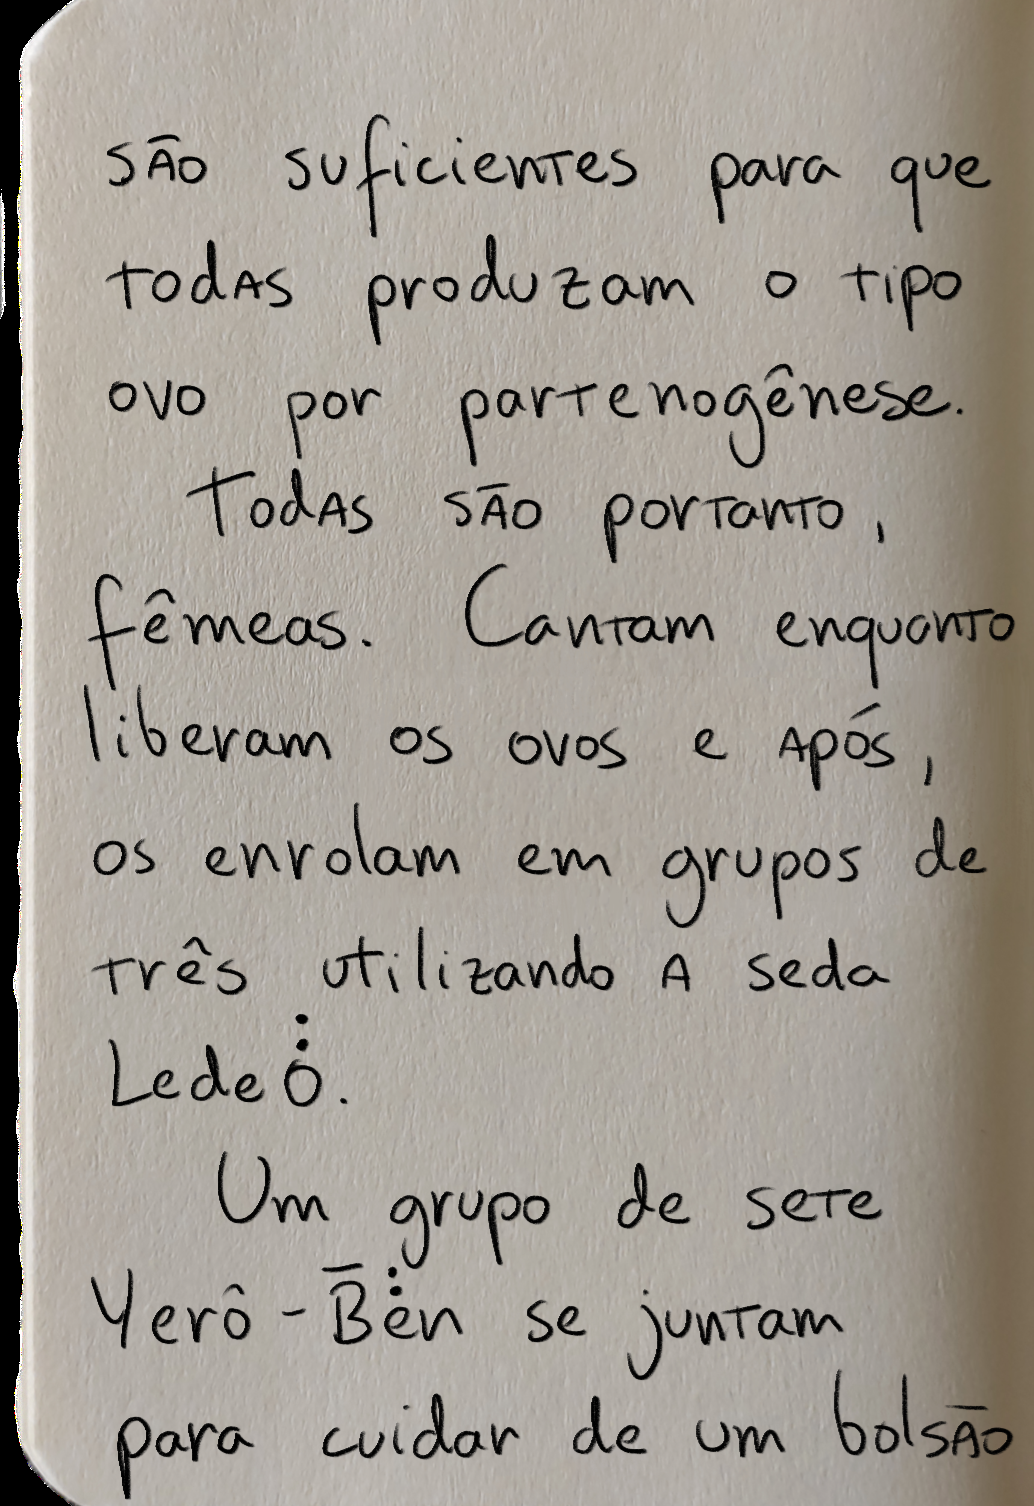 são suficientes para que
todas produzam o tipo
ovo por partenogênese.
Todas são portanto,
fêmeas. Cantam enquanto
liberam os ovos e após,
os enrolam em grupos de
três utilizando a seda
Ledeȯ̇.
Um grupo de sete
Yerô-B̄ė̇n se juntam
para cuidar de um bolsão